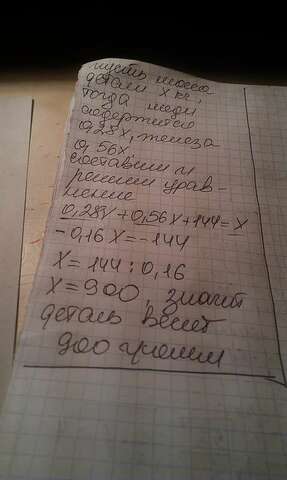 пусть масса
детали х кг,
тогда меди
содержится
0,28х, железа
0,56х
составим и
решим урав-
нение
0,28х+0,56х+144=х
-0,16х=-144
х=144:0,16
х=900, значит
деталь весит
900 грамм